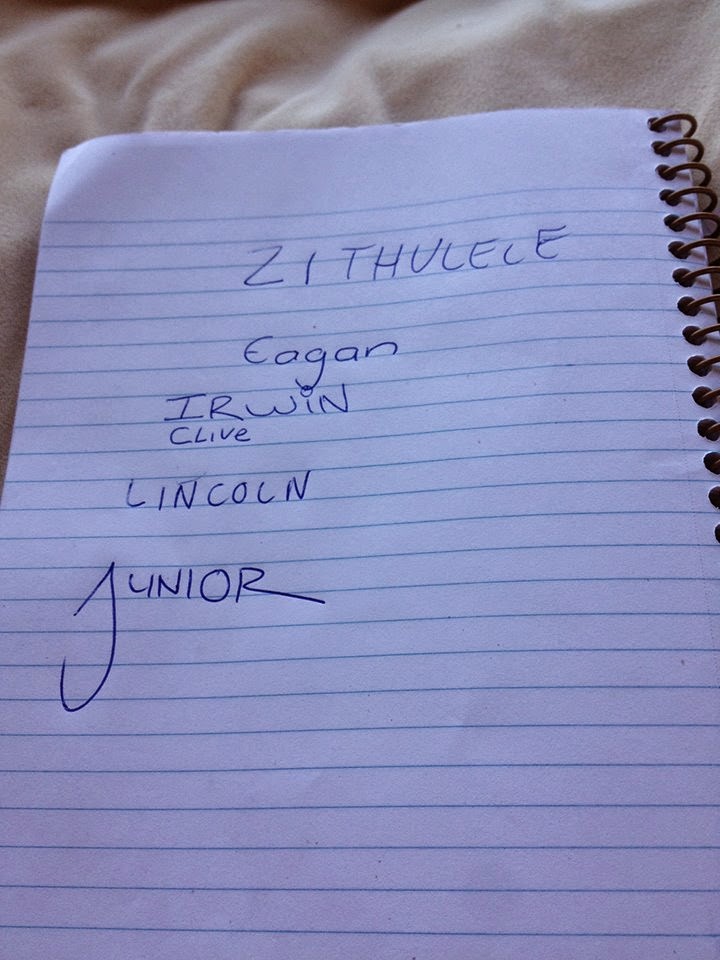 ZITHULELE
Eagan
IRWIN
Clive
LINCOLN
JUNIOR